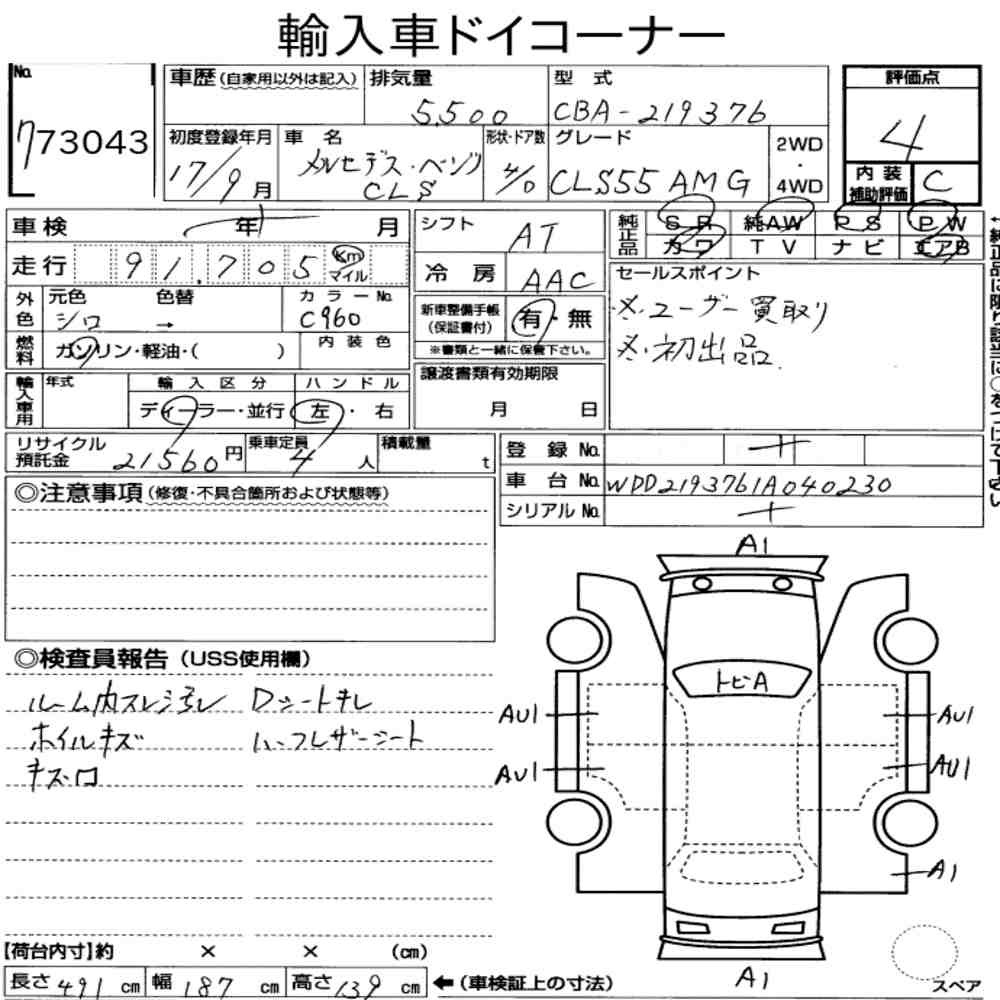 輸入車ドイコーナー
No.
773043
車歴(自家用以外は記入)
排気量
5,500
型 式
CBA-219376
評価点
4
初度登録年月
17/9月
車 名
メルセデス・ベンツ
CLS
形状・ドア数
4/D
グレード
CLS55 AMG
2WD
・
4WD
内 装
補助評価
C
車検
年 月
シフト
AT
純正品
S R 純AW P S P W
カワ T V ナビ エアB
走行
91,705
Km
マイル
冷 房
AAC
セールスポイント
※.ユーザー買取り
※.初出品.
外色
元色 色替 カラーNo.
シロ → C960
新車整備手帳
(保証書付)
有・無
※書類と一緒に保管下さい。
燃料
ガソリン・軽油・( )
内 装 色
輸入車用
年式
輸 入 区 分
ディーラー・並行
ハ ン ド ル
左・右
譲渡書類有効期限
月 日
←純正品に限り該当に○をつけて下さい
リサイクル
預託金
21560円
乗車定員
4人
積載量
t
登 録 No.
車 台 No. WDD2193761A040230
シリアル No.
◎注意事項(修復・不具合箇所および状態等)
A1
◎検査員報告(USS使用欄)
ルーム内スレヨゴレ Dシートキレ
ホイルキズ ハーフレザーシート
キズ・ロ
トビA
AU1
AU1
AU1
AU1
A1
A1
【荷台内寸】約 × × (cm)
長さ 491 cm 幅 187 cm 高さ 139 cm
←(車検証上の寸法)
スペア